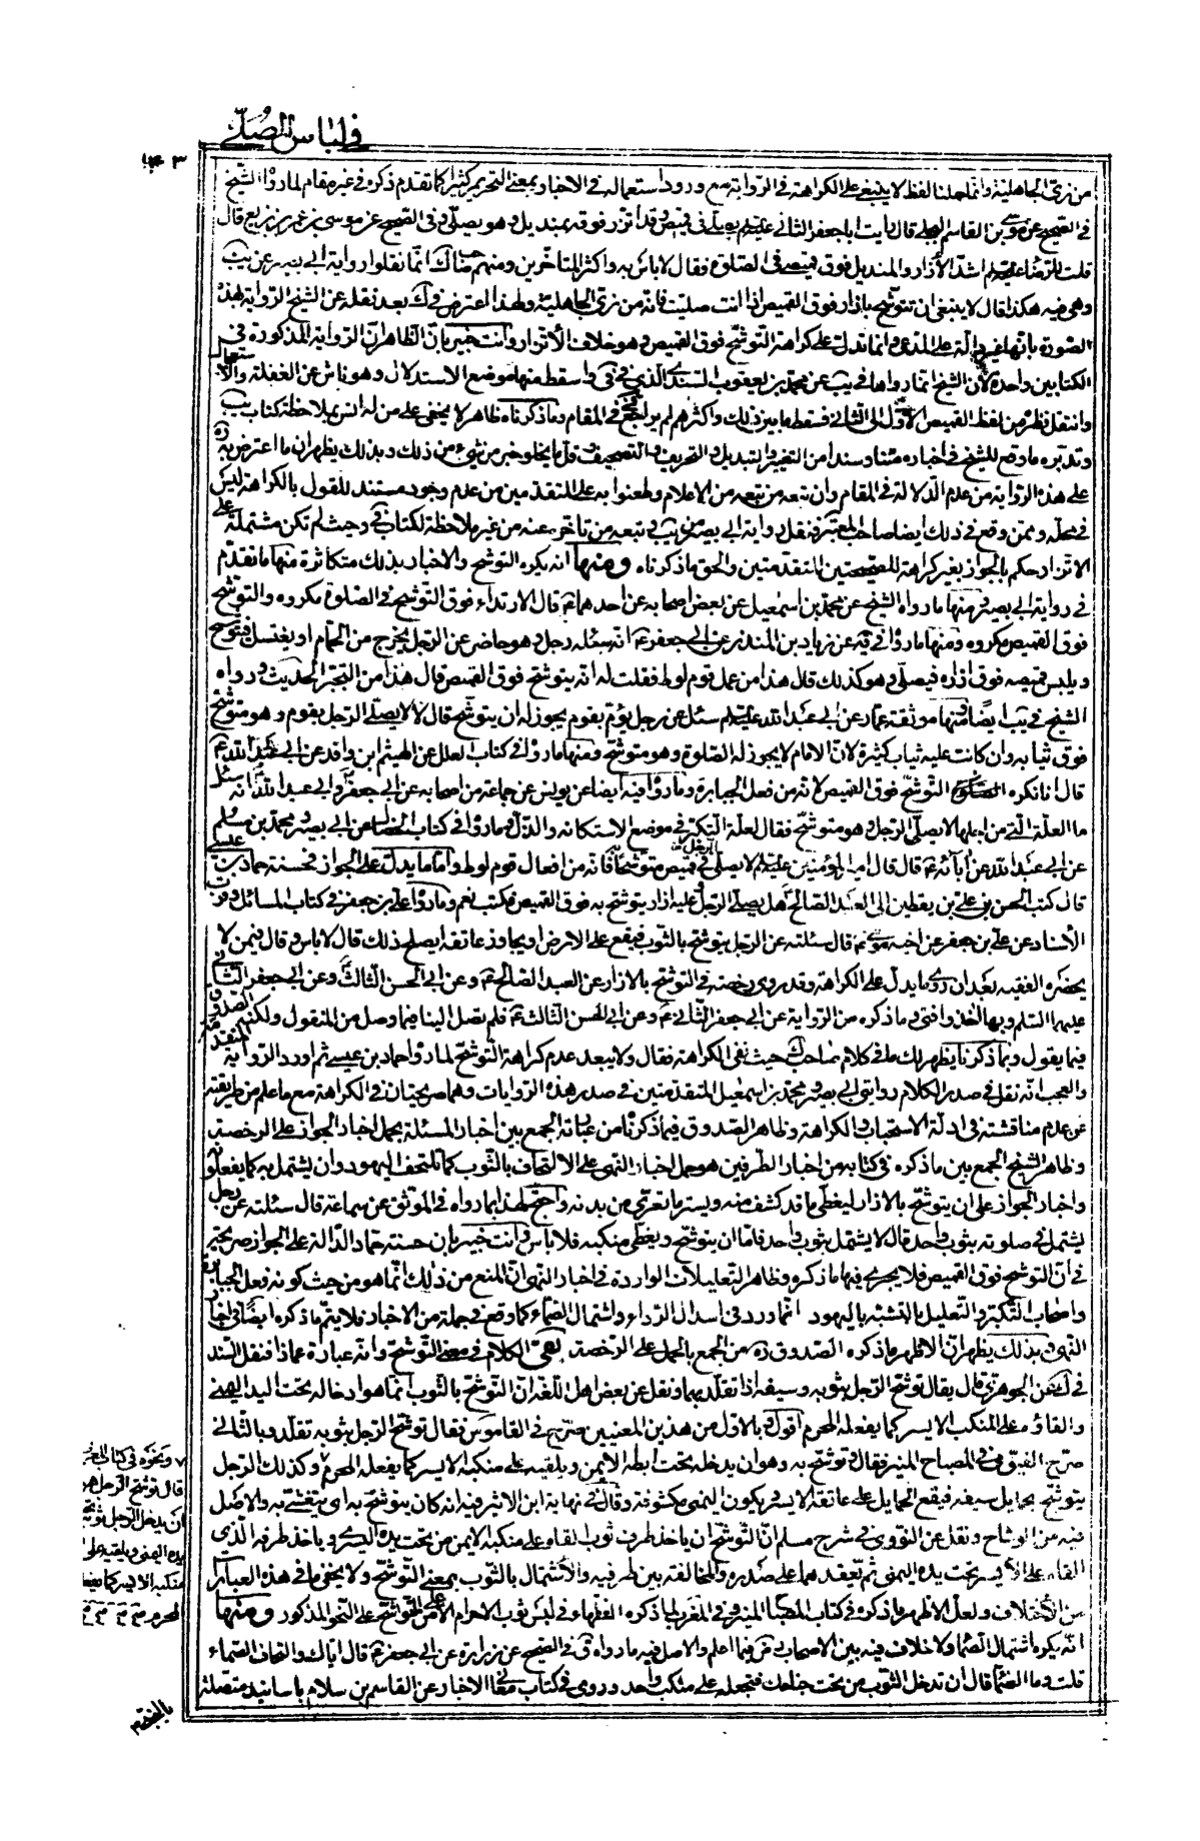 في لباس المصلّي
١٤٣
من زيّ الجاهلية وانما حملنا لفظ لا ينبغي على الكراهة في الرواية مع ورود استعماله في الاخبار بمعنى التحريم كثيرا كما تقدم ذكره في غير مقام لما رواه الشيخ
في الصحيح عن موسى بن القاسم البجلي قال رايت ابا جعفر الثاني عليه السلم يصلّى في قميص قد اتزر فوقه بمنديل وهو يصلّى وفي الصحيح عن موسى بن عمر بن بزيع قال
قلت للرضا عليه السلم اشدّ الأزار والمنديل فوق قميصي في الصلوة فقال لا باس به واكثر المتاخرين ومنهم صاحب ك انما نقلوا رواية ابي بصير عن يب
وهي فيه هكذا قال لا ينبغي ان تتوشح بازار فوق القميص اذا انت صليت فانه من زي الجاهلية ولهذا اعترض في ك بعد نقله عن الشيخ الرواية بهذه
الصورة بانها غير دالّة على المدعى وانما تدل على كراهة التوشّح فوق القميص وهو خلاف الأتزار وانت خبير بانّ الظاهر انّ الرواية المذكورة في
الكتابين واحدة لأن الشيخ انما رواها في يب عن محمد بن يعقوب بالسند الّذي في في واسقط منها موضع الاستدلال وهو ناش عن الغفلة والاستعجال
وانتقل نظره من لفظ القميص الأوّل الى الثاني فسقط ما بين ذلك واكثرهم لم يراجع في في المقام وما ذكرناه ظاهر لا يخفى على من له انس بملاحظة كتاب يب
وتدبّره ما وقع للشيخ في اخباره متنا وسندا من التغيير والتبديل والتحريف والتصحيف وقلّ ما يخلو خبر من شيء من ذلك وبذلك يظهر ان ما اعترض به
على هذه الرواية من عدم الدلالة في المقام وان تبعه من تبعه من الاعلام وطعنوا به على المتقدمين من عدم وجود مستند للقول بالكراهة ليس
في محلّه وممن وقع في ذلك ايضا صاحب المعتبر فنقل رواية ابي بصير من يب وتبعه من تاخر عنه من غير ملاحظة لكتاب في وحيث لم تكن مشتملة على
الاتزار حكم بالجواز بغير كراهة للصحيحتين المتقدمتين والحق ما ذكرناه ومنها انه يكره التوشح والاخبار بذلك متكاثرة منها ما تقدّم
في رواية ابي بصير ومنها ما رواه الشيخ عن محمد بن اسمعيل عن بعض اصحابه عن احدهما ع قال الارتداء فوق التوشّح في الصلوة مكروه والتوشّح
فوق القميص مكروه ومنها ما رواه في يه عن زياد بن المنذر عن ابي جعفر ع انّه سئله رجل وهو حاضر عن الرجل يخرج من الحمام او يغتسل فيتوشّح
ويلبس قميصه فوق ازاره فيصلّي وهو كذلك قال هذا من عمل قوم لوط فقلت له انّه يتوشّح فوق القميص قال هذا من التجبّر الحديث ورواه
الشيخ في يب ايضا ومنها موثقة عمار عن ابي عبد الله عليه السلم سئل عن رجل يؤمّ بقوم يجوز له ان يتوشّح قال لا لا يصلّي الرجل بقوم وهو متوشّح
فوق ثيابه وان كانت عليه ثياب كثيرة لانّ الامام لا يجوز له الصلوة وهو متوشّح ومنها ما رواه في كتاب العلل عن الهيثم ابن واقد عن ابي عبد الله ع
قال انما نكره التّوشّح فوق القميص لانّه من فعل الجبابرة وما رواه فيه ايضا عن يونس عن جماعة من اصحابه عن ابي جعفر وابي عبد الله انّه سئل
ما العلّة الّتي من اجلها لا يصلّي الرجل وهو متوشّح فقال لعلّة التكبّر في موضع الاستكانة والذّل وما رواه في كتاب الخصال عن ابي بصير ومحمد بن مسلم
عن ابي عبد الله عن آبائه ع قال قال امير المؤمنين عليه السلم لا يصلّي الرجل في قميص متوشّحا فانه من افعال قوم لوط واما ما يدلّ على الجواز فحسنة حماد بن عيسى
قال كتب الحسن بن علي بن يقطين الى العبد الصالح هل يصلّي الرجل وعليه ازار يتوشّح به فوق القميص فكتب نعم وما رواه علي بن جعفر في كتاب المسائل وقرب
الأسناد عن علي بن جعفر عن اخيه موسى ع قال سئلته عن الرجل يتوشّح بالثوب فيقع على الارض او يجاوز عاتقه ايصلح ذلك قال لا باس وقال فيمن لا
يحضره الفقيه بعد ان روى ما يدلّ على الكراهة وقد روي رخصة في التوشّح بالازار عن العبد الصالح ع وعن ابي الحسن الثالث وعن ابي جعفر الثاني
عليهما السلم وبها اخذ وافتى وما ذكره من الرواية عن ابي جعفر الثاني ع وعن ابي الحسن الثالث ع فلم يصل الينا فيما وصل من المنقول ولكنه الصدوق
فيما يقول وبما ذكرنا يظهر لك ما في كلام صاحب ك حيث نفى الكراهة فقال ولا يبعد عدم كراهة التوشّح لما رواه حماد بن عيسى ثم اورد الرواية المتقدمة
والعجب انّه نقل في صدر الكلام روايتي ابي بصير ومحمد بن اسمعيل المتقدمتين في صدر هذه الروايات وهما صريحتان في الكراهة مع ما علم من طريقته
من عدم مناقشته في ادلّة الاستحباب والكراهة وظاهر الصدوق فيما ذكرناه من عباراته الجمع بين اخبار المسئلة بحمل اخبار الجواز على الرخصة
وظاهر الشيخ الجمع بين ما ذكره في كتابه من اخبار الطرفين هو حمل اخبار النهي على الالتحاف بالثوب كما تلتحف اليهود وان يشتمل به كما يفعلونه
واخبار الجواز على ان يتوشّح بالازار ليغطّي ما قد كشف منه ويستر ما تعرّى من بدنه واحتج لهذا بما رواه في الموثق عن سماعة قال سئلته عن رجل
يشتمل في صلوته بثوب واحد قال لا يشتمل بثوب واحد فامّا ان يتوشّح ويغطّي منكبيه فلا باس وانت خبير بان حسنة حماد الدّالة على الجواز صريحة
في انّ التوشّح فوق القميص فلا يجرى فيها ما ذكره وظاهر التعليلات الواردة في اخبار النهي انّ المنع من ذلك انّما هو من حيث كونه فعل الجبابرة
واصحاب التكبّر والتعليل بالتشبّه باليهود انما ورد في اسدال الرداء واشتمال الصّماء كما وقع في جملة من الاخبار فلا يتمّ ما ذكره ايضا في اخبار
النهي وبذلك يظهر انّ الاظهر ما ذكره الصدوق ره من الجمع بالحمل على الرخصة بقي الكلام في معنى التوشّح وانّه عبارة عماذا فنقل السيد
في ك عن الجوهري قال يقال توشّح الرجل بثوبه وسيفه اذا تقلّد بهما ونقل عن بعض اهل اللغة انّ التوشّح بالثوب انّما هو ادخاله تحت اليد اليمنى
والقاؤه على المنكب الايسر كما يفعله المحرم اقول وبالاوّل من هذين المعنيين صرّح في القاموس فقال توشّح الرجل بثوبه تقلّد وبالثاني
صرّح الفيومي في المصباح المنير فقال توشّح به وهو ان يدخله تحت ابطه الايمن ويلقيه على منكبه الايسر كما يفعله المحرم وكذلك الرجل
يتوشّح بحمايل سيفه فيقع الحمايل على عاتقه الايسر ويكون اليمنى مكشوفة وقال في نهاية ابن الاثير فيه انه كان يتوشّح به اي يتغشّى به والاصل
فيه من الوشاح ونقل عن النووي في شرح مسلم انّ التّوشّح ان ياخذ طرف ثوب القاه على منكبه الايمن من تحت يده اليسرى وياخذ طرفه الذي
القاه على الأيسر تحت يده اليمنى ثمّ يعقدهما على صدره والمخالفة بين طرفيه والاشتمال بالثّوب بمعنى التوشّح ولا يخفى ما في هذه العبائر
من الأختلاف ولعلّ الاظهر ما ذكره في كتاب المصباح المنير وفي المغرب لما ذكره الفقهاء في لبس ثوب الاحرام الأمر على التوشّح على النحو المذكور ومنها
انّه يكره اشتمال الصّماء ولا خلاف فيه بين الاصحاب رض فيما اعلم والاصل فيه ما رواه في في الصحيح عن زرارة عن ابي جعفر ع قال ايّاك والتحاف الصّماء
قلت وما الصماء قال ان تدخل الثوب من تحت جناحك فتجعله على منكب واحد وروى في كتاب معاني الاخبار عن القاسم بن سلام باسانيد متصلة
٧ ونحوه في كتاب المغرب
قال توشّح الرجل هو
ان يدخل الرجل ثوبه تحت
يده اليمنى ويلقيه على
منكبه الايسر كما يفعله
المحرم
بالنبي ص